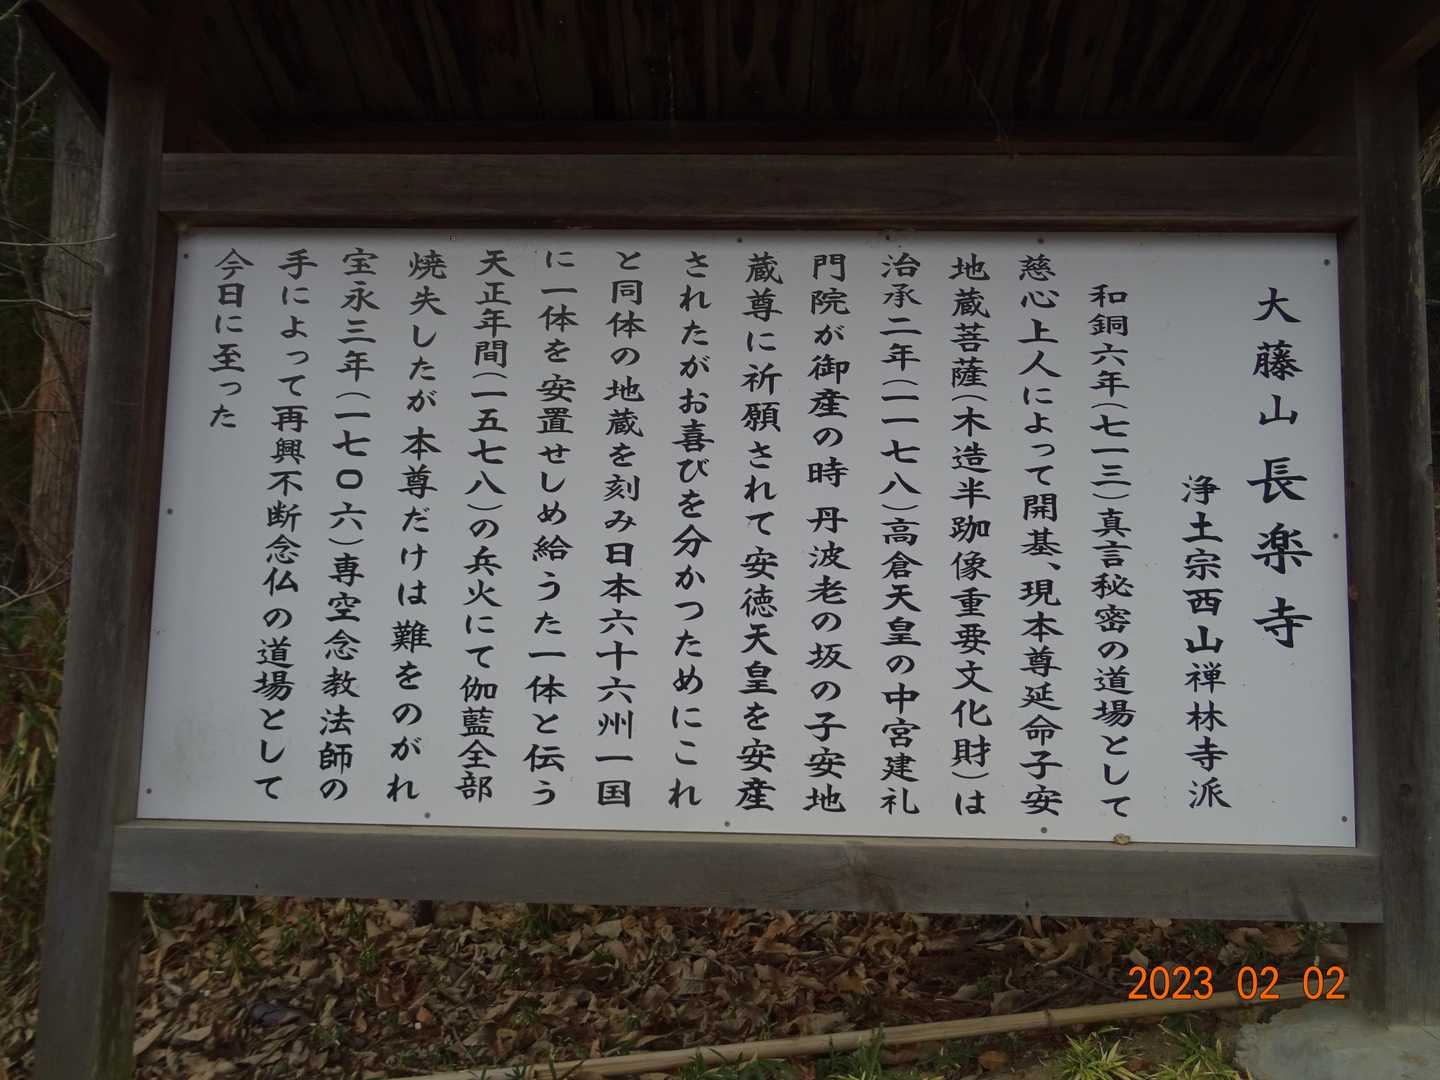 大藤山長楽寺
浄土宗西山禅林寺派
和銅六年(七一三)真言秘密の道場として
慈心上人によって開基、現本尊延命子安
地蔵菩薩(木造半跏像重要文化財)は
治承二年(一一七八)高倉天皇の中宮建礼
門院が御産の時丹波老の坂の子安地
蔵尊に祈願されて安徳天皇を安産
されたがお喜びを分かつためにこれ
と同体の地蔵を刻み日本六十六州一国
に一体を安置せしめ給うた一体と伝う
天正年間(一五七八)の兵火にて伽藍全部
焼失したが本尊だけは難をのがれ
宝永三年(一七〇六)専空念教法師の
手によって再興不断念仏の道場として
今日に至った
2023 02 02